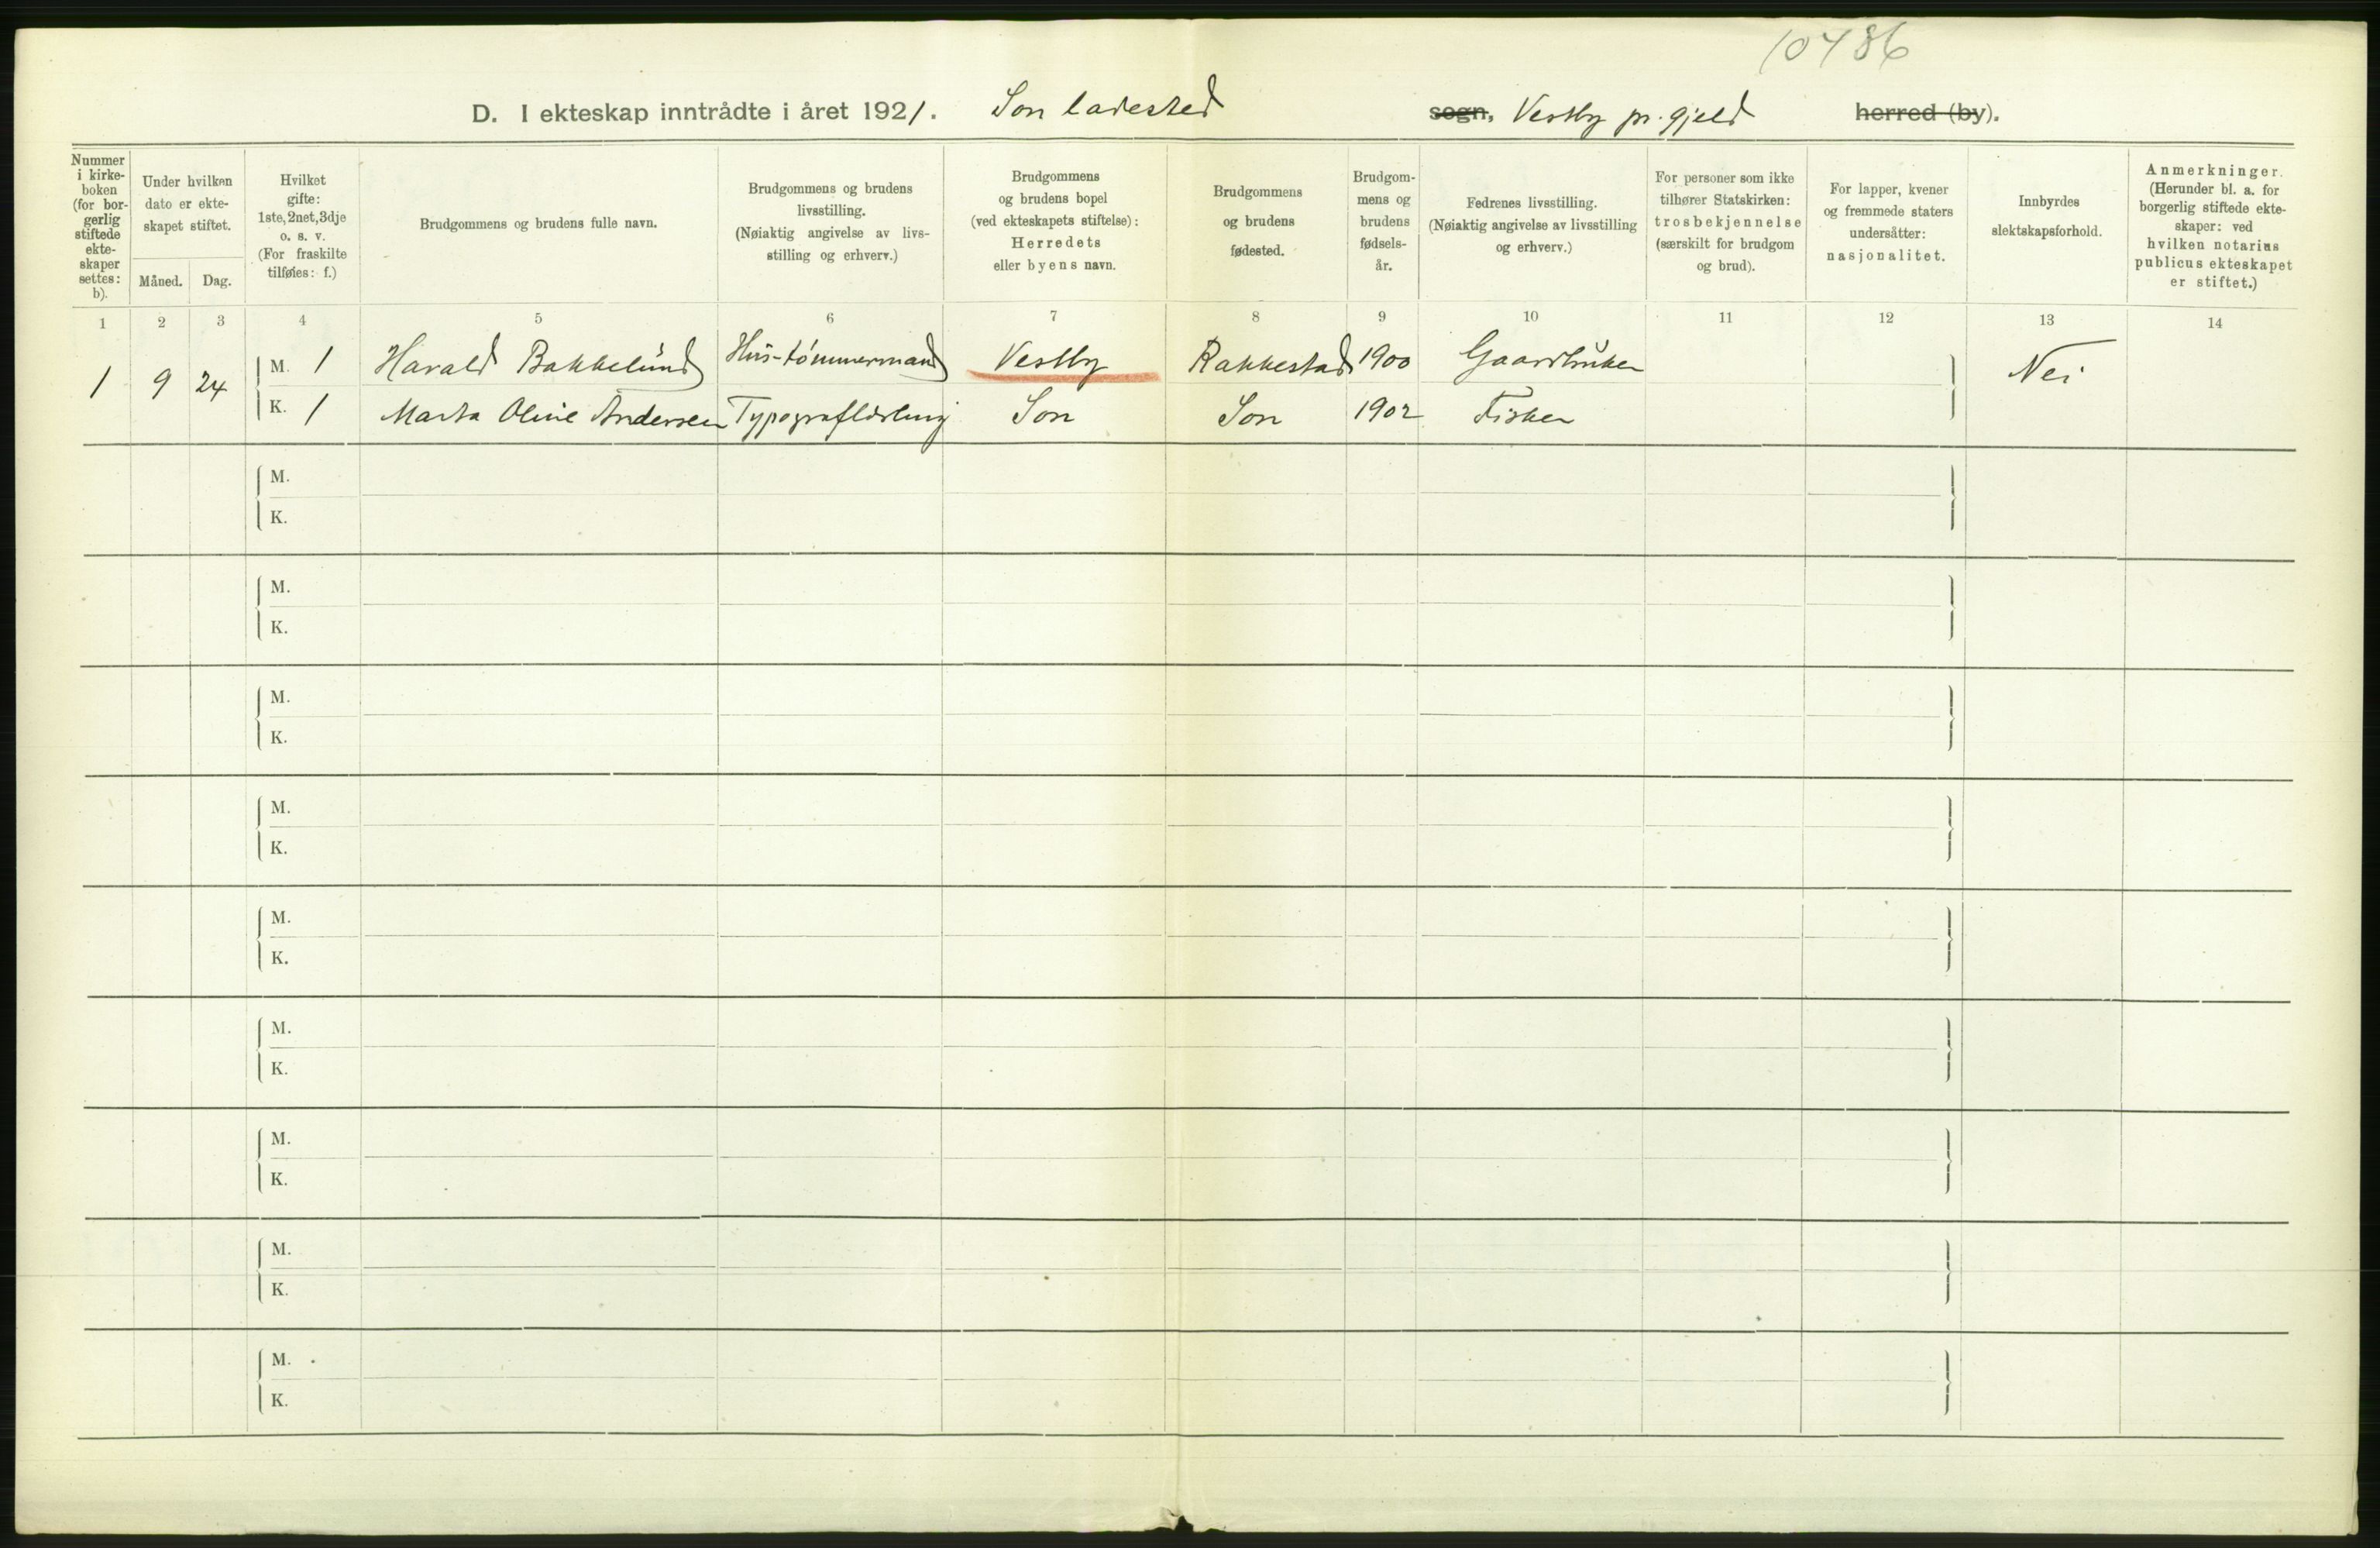 10486
D. I ekteskap inntrådte i året 1921. Son ladested sogn, Vestby pr.gjeld herred (by).
Nummer
i kirke-
boken
(for bor-
gerlig
stiftede
ekte-
skaper
settes:
b).
Under hvilken
dato er ekte-
skapet stiftet.
Måned. Dag.
Hvilket
gifte:
1ste, 2net, 3dje
o. s. v.
(For fraskilte
tilføies: f.)
Brudgommens og brudens fulle navn.
Brudgommens og brudens
livsstilling.
(Nøiaktig angivelse av livs-
stilling og erhverv.)
Brudgommens
og brudens bopel
(ved ekteskapets stiftelse):
Herredets
eller byens navn.
Brudgommens
og brudens
fødested.
Brudgom-
mens og
brudens
fødsels-
år.
Fedrenes livsstilling.
(Nøiaktig angivelse av livsstilling
og erhverv.)
For personer som ikke
tilhører Statskirken:
trosbekjennelse
(særskilt for brudgom
og brud).
For lapper, kvener
og fremmede staters
undersåtter:
nasjonalitet.
Innbyrdes
slektskapsforhold.
Anmerkninger.
(Herunder bl. a. for
borgerlig stiftede ekte-
skaper: ved
hvilken notarius
publicus ekteskapet
er stiftet.)
1 2 3 4 5 6 7 8 9 10 11 12 13 14
1 9 24 M. 1 Harald Bakkelund Hus-tømmermand Vestby Rakkestad 1900 Gaardbruker Nei
K. 1 Marta Oline Andersen Typograflærling Son Son 1902 Fisker
M.
K.
M.
K.
M.
K.
M.
K.
M.
K.
M.
K.
M.
K.
M.
K.
M.
K.